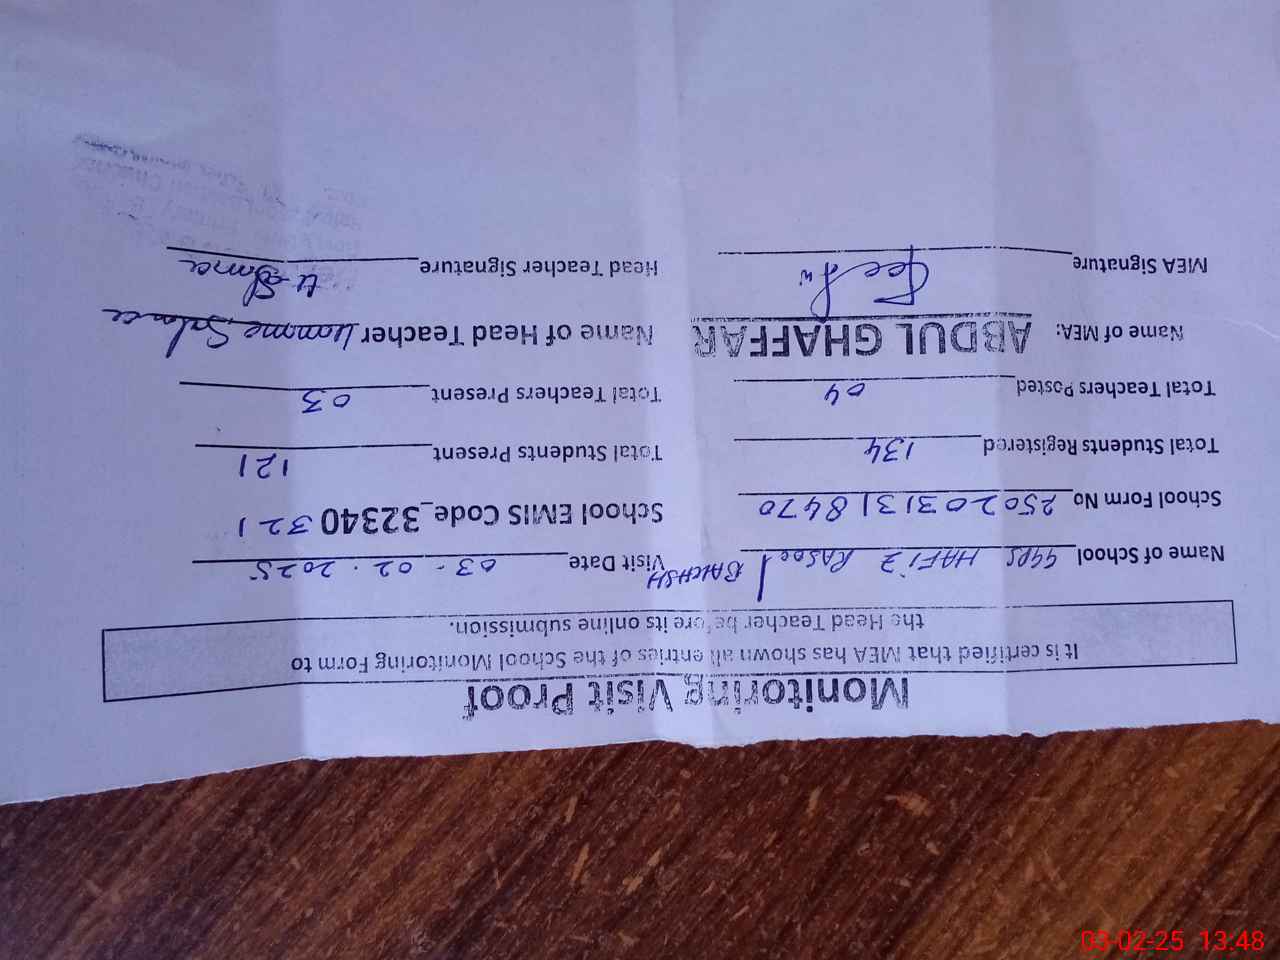 Monitoring Visit Proof
It is certified that MEA has shown all entries of the School Monitoring Form to
the Head Teacher before its online submission.
Name of School GGPS HAFiZ RASool BAKHSH Visit Date 03-02-2025
School Form No 2502031318470 School EMIS Code_32340 321
Total Students Registered 134 Total Students Present 121
Total Teachers Posted 04 Total Teachers Present 03
Name of MEA: ABDUL GHAFFAR Name of Head Teacher
MEA Signature Head Teacher Signature
03-02-25 13:48